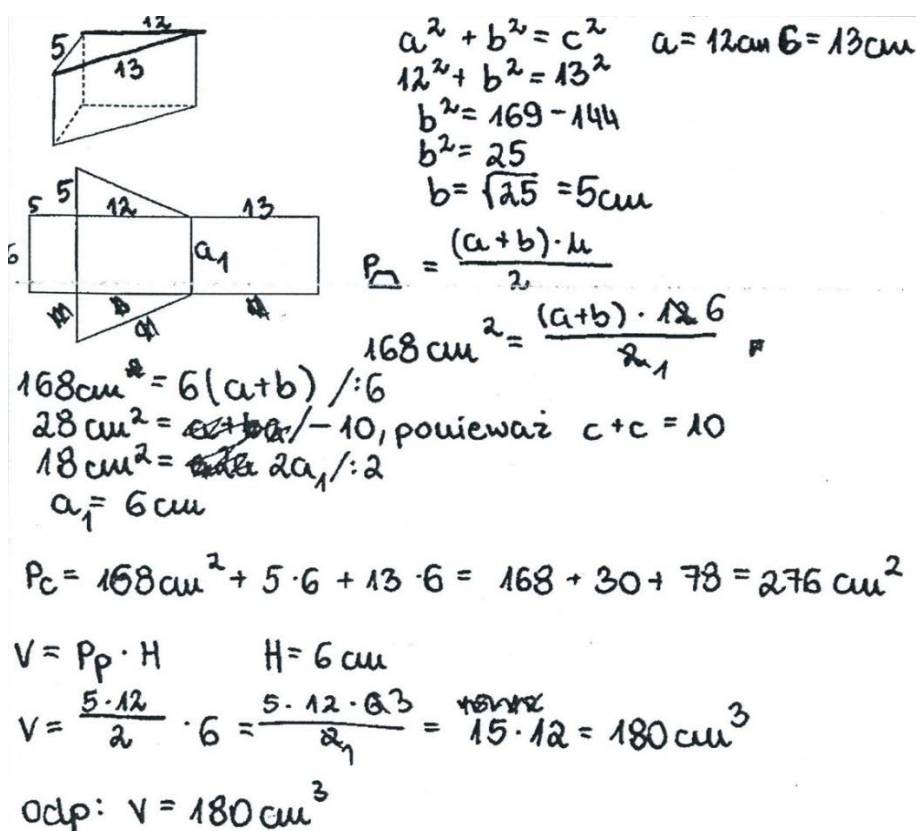 12
5
13
a² + b² = c² a = 12cm 6 = 13cm
12² + b² = 13²
b² = 169 - 144
b² = 25
b = √25 = 5cm
5 5 12 13
a₁
P = (a+b)·h / 2
168 cm² = (a+b) · 12 6 / 2 1
168cm² = 6(a+b) /:6
28 cm² = /-10, ponieważ c+c = 10
18 cm² = 2a₁ /:2
a₁ = 6 cm
Pc = 168cm² + 5·6 + 13·6 = 168 + 30 + 78 = 276 cm²
V = Pp · H H = 6 cm
V = 5·12 / 2 · 6 = 5·12·6 3 / 2 1 = 15·12 = 180 cm³
odp: V = 180 cm³